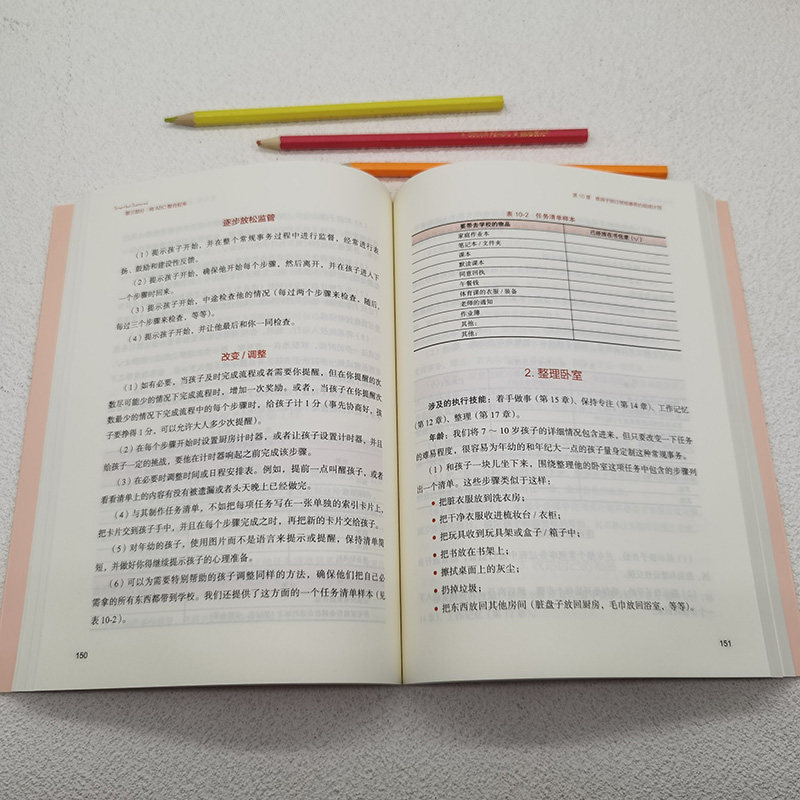 逐步放松监管
（1）提示孩子开始，并在整个常规事务过程中进行监督，经常进行表
扬、鼓励和建设性反馈。
（2）提示孩子开始，确保他开始每个步骤，然后离开，并在孩子进入下
一个步骤时回来。
（3）提示孩子开始，中途检查他的情况（每过两个步骤来检查，随后，
每过三个步骤来检查，等等）。
（4）提示孩子开始，并让他最后和你一同检查。
改变 / 调整
（1）如有必要，当孩子及时完成流程或者需要你提醒，但在你提醒的次
数尽可能少的情况下完成流程时，增加一次奖励。或者，当孩子在你提醒次
数最少的情况下完成流程中的每个步骤时，给孩子计 1 分（事先协商好，孩
子要挣得 1 分，可以允许大人多少次提醒）。
（2）在每个步骤开始时设置厨房计时器，或者让孩子设置计时器，并且
给孩子一定的挑战，要他在计时器响起之前完成该步骤。
（3）在必要时调整时间或日程安排表。例如，提前一点叫醒孩子，或者
看看清单上的内容有没有被遗漏或者头天晚上已经做完。
（4）与其制作任务清单，不如把每项任务写在一张单独的索引卡片上，
把卡片交到孩子手中，并且在每个步骤完成之时，再把新的卡片交给孩子。
（5）对年幼的孩子，使用图片而不是语言来提示或提醒，保持清单简
短，并做好你得继续提示孩子的心理准备。
（6）可以为需要特别帮助的孩子调整同样的方法，确保他们把自己必
需拿的所有东西都带到学校。我们还提供了这方面的一个任务清单样本（见
表 10-2）。
150
表 10-2 任务清单样本
要带去学校的物品 已经放在书包里（√）
家庭作业本
笔记本 / 文件夹
课本
默读课本
同意回执
午餐钱
体育课的衣服 / 装备
老师的通知
作业簿
其他：
其他：
2. 整理卧室
涉及的执行技能：着手做事（第 15 章）、保持专注（第 14 章）、工作记忆
（第 12 章）、整理（第 17 章）。
年龄：我们将 7 ～ 10 岁孩子的详细情况包含进来，但只要改变一下任务
的难易程度，很容易为年幼的和年纪大一点的孩子量身定制这种常规事务。
（1）和孩子一块儿坐下来，围绕整理他的卧室这项任务中包含的步骤列
出一个清单。这些步骤类似于这样：
• 把脏衣服放到洗衣房；
• 把干净衣服收进梳妆台 / 衣柜；
• 把玩具收到玩具架或盒子 / 箱子中；
• 把书放在书架上；
• 擦拭桌面上的灰尘；
• 扔掉垃圾；
• 把东西放回其他房间（脏盘子放回厨房，毛巾放回浴室，等等）。
151